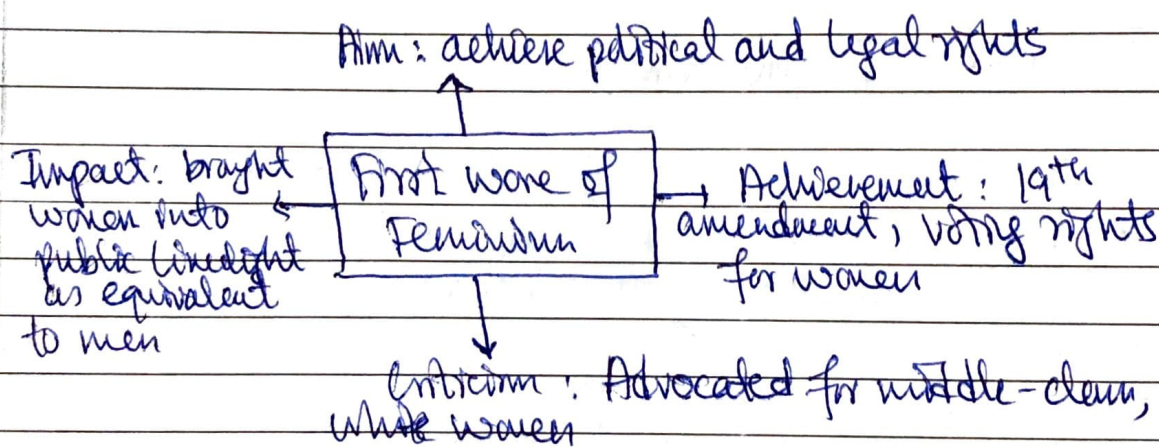 Aim: achieve political and legal rights
First wave of
Feminism
Impact: brought
women into
public limelight
as equivalent
to men
Achievement: 19th
amendment, voting rights
for women
Criticism: Advocated for middle-class,
white women